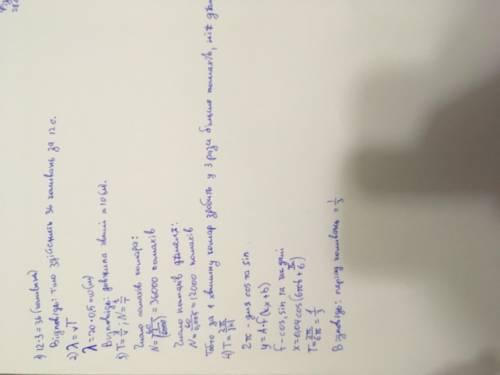 1) 12·3=36 (коливань)
Відповідь: тіло здійснить 36 коливань за 12 с.
2) λ=vT
λ=20·0,5=10(м)
Відповідь: довжина хвилі = 10 м.
3) T=1/ν; N=t/T
Число помахів комара:
N= =36000 помахів
Число помахів джмеля:
N=60/0,005=12000 помахів
Тобто за 1 хвилину комар зробить у 3 рази більше помахів, ніж
4) T=2π/|k|
2π - для cos та sin
y=A·f(kx+b)
f - cos, sin та
x=0,04cos(6πt+π/6)
T=2π/6π=1/3
Відповідь: період коливань = 1/3